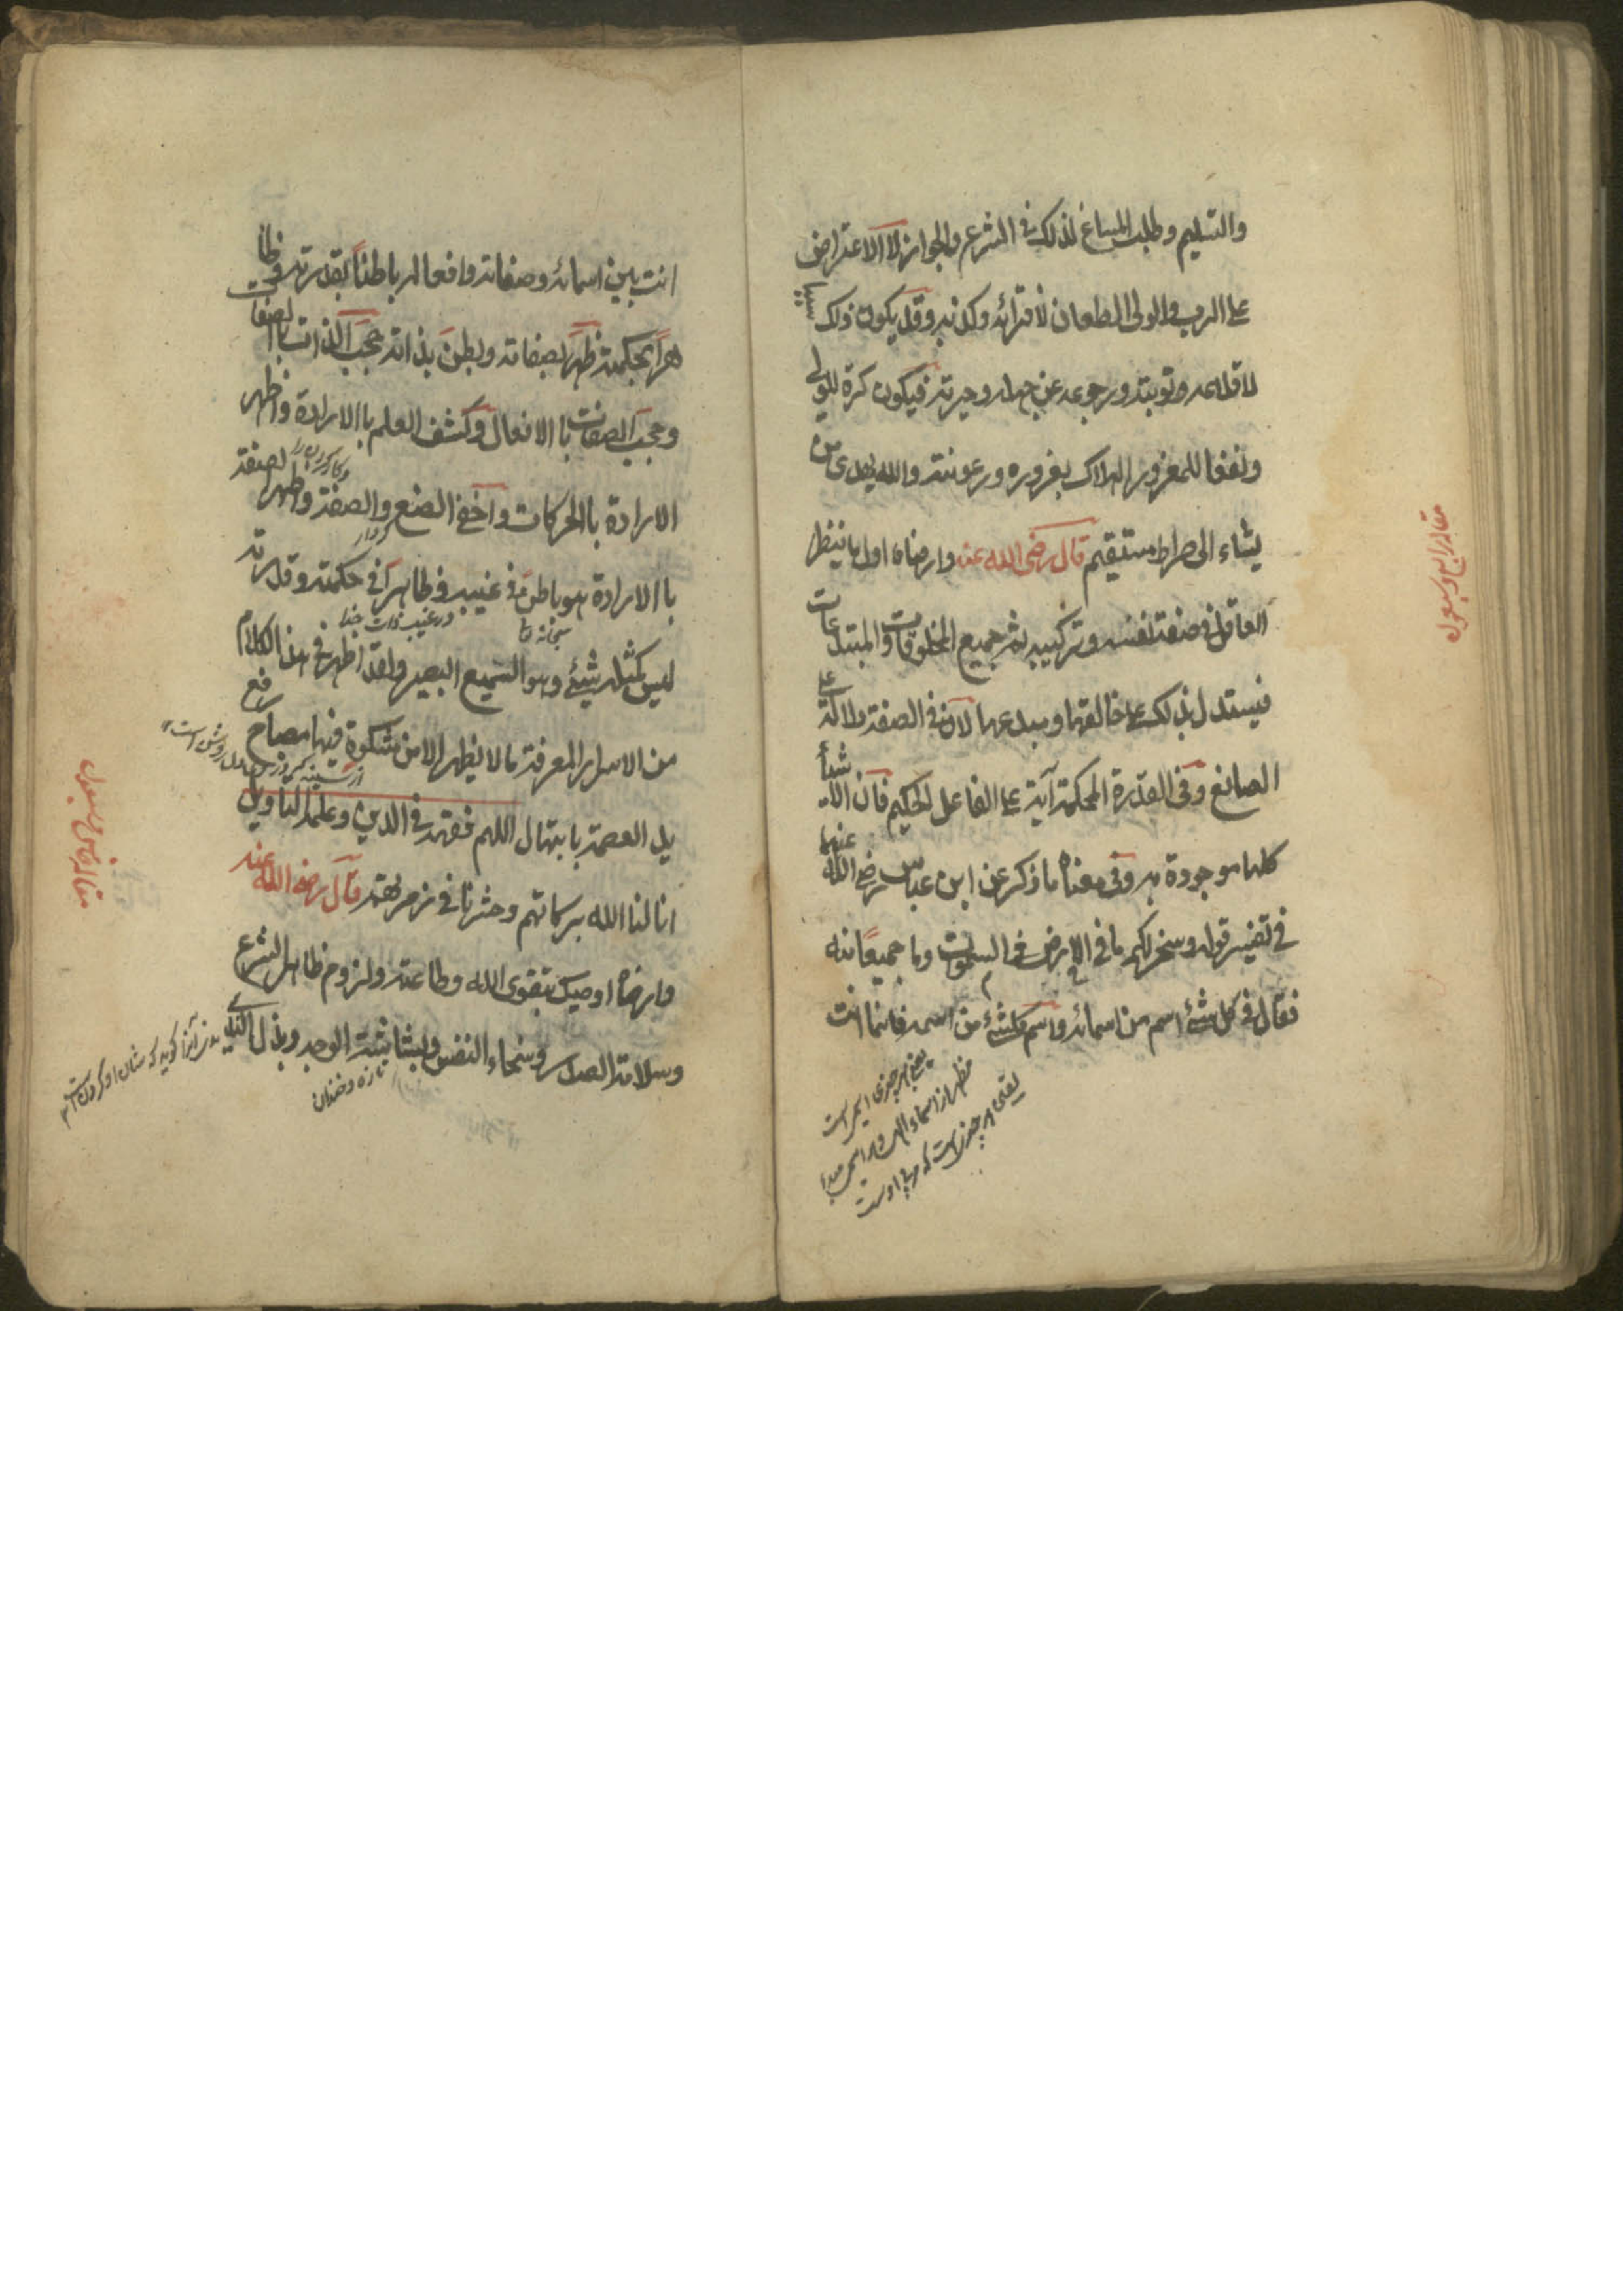 والتسليم وطلب المساغ لذلك في الشرع والجواز لا الاعتراض
على الرب والولى الطعان لافترائه وكذبه وقد يكون ذلك سببا
لاقلاعه وتوبته ورجوعه عن جهله وحيرته فيكون كرة للولى
ونفعا للمغرور الهلاك بغروره ورعونته والله يهدى من
يشاء الى صراط مستقيم قال رضى الله عنه وارضاه اول ما ينظر
العاقل في صفة نفسه وتركيبه ثم جميع المخلوقات والمبتدعات
فيستدل بذلك على خالقها ومبدعها لان في الصفة دلالة على
الصانع وفى القدرة المحكمة آية على الفاعل الحكيم فان الاشيأ
كلها موجودة به وفى معناه ما ذكر عن ابن عباس رضى الله عنهما
في تفسير قوله وسخر لكم ما في السموت وما في الارض جميعا منه
فقال في كل شئ اسم من اسمائه واسم كل شئ من اسمه فانما انت
يعنى هر چيزى اسمى است
مظهر از اسماء الهى
مقاله رابع وسبعون
انت بين اسمائه وصفاته وافعاله باطنا بقدرته وظا
هرا بحكمته ظهر بصفاته وبطن بذاته حجب الذات باالصفات
وحجب الصفات باالافعال وكشف العلم باالارادة واظهر
الارادة باالحركات واخفى الصنع والصفة واظهر الصنعة
باالارادة هو باطن في غيبه وظاهر في حكمته وقدرته
در غيب ذات خدا
ليس كمثله شيئ وهو السميع البصير ولقد اظهر في هذا الكلام
من الاسرار المعرفة ما لا يظهر الا من مشكوة فيها مصباح رفع
يد العصمة بابتهال اللهم فقهه في الدين وعلمه التاويل
انالنا الله بركاتهم وحشرنا في زمرتهم قال رضى الله عنه
وارضاه اوصيك بتقوى الله وطاعته ولزوم ظاهر الشرع
وسلامة الصدر وسخاء النفس وبشاشة الوجه وبذل الندى
تازه وخندان
مقاله خامس وسبعون